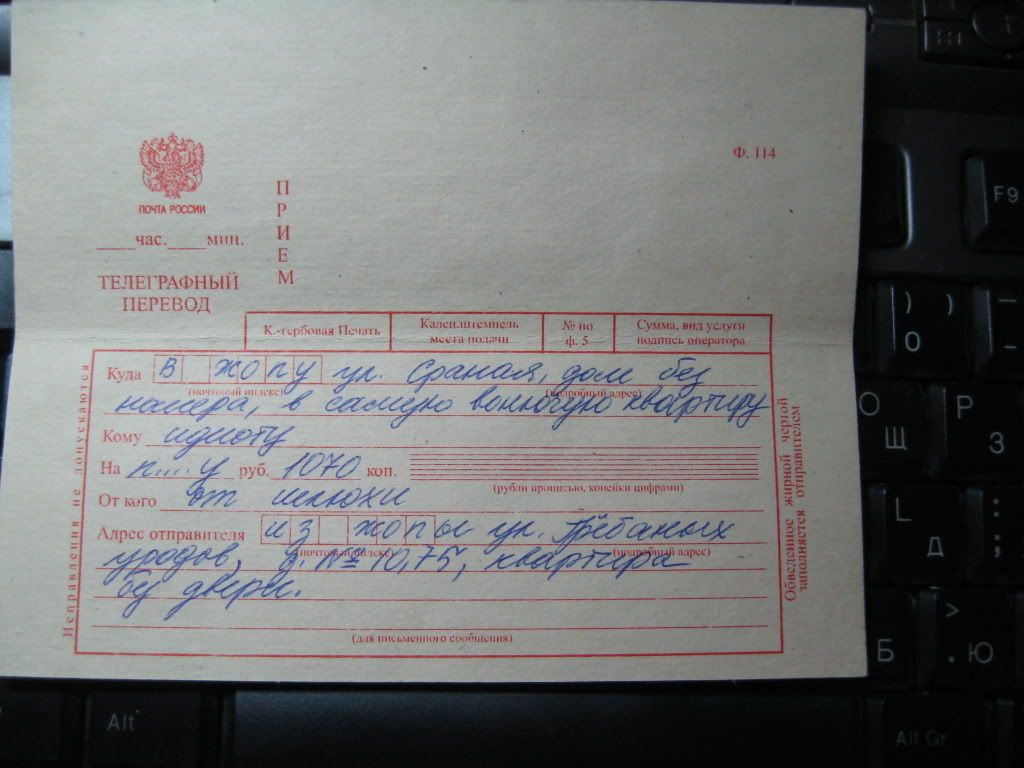 Ф. 114
ПОЧТА РОССИИ
ПРИЕМ
____час.____мин.
ТЕЛЕГРАФНЫЙ
ПЕРЕВОД
К.-гербовая Печать
Календ.штемпель
места подачи
№ по
ф. 5
Сумма, вид услуги
подпись оператора
Исправления не допускаются
Куда в жопу ул. Сраная, дом без
(почтовый индекс) (подробный адрес)
номера, в самую вонючую квартиру
Кому идиоту
На п....у руб. 1070 коп.
(рубли прописью, копейки цифрами)
От кого от шлюхи
Адрес отправителя из жопы ул. Трёбаных
(почтовый индекс) (подробный адрес)
уродов, д. № 10,75, квартира
без двери.
(для письменного сообщения)
Обведенное жирной чертой
заполняется отправителем
F9
)
)
0
–
–
O
Щ
P
З
L
Д
:
;
Б
>
.
Ю
Alt
Alt Gr